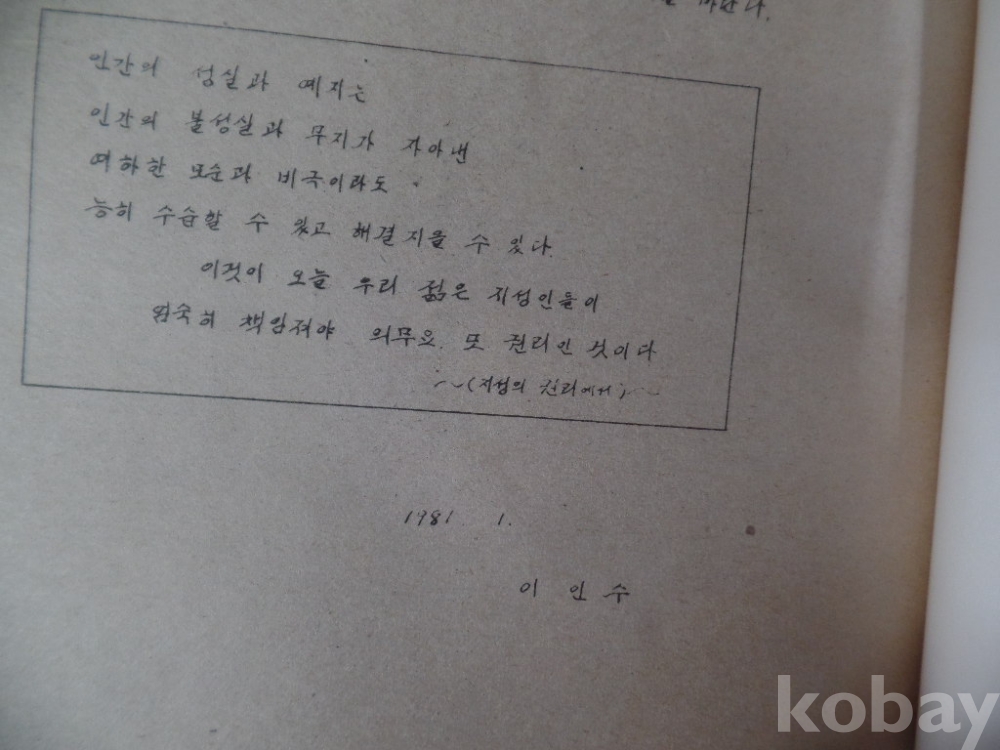 바란다.
인간의 성실과 예지는
인간의 불성실과 무지가 자아낸
여하한 모순과 비극이라도
능히 수습할 수 있고 해결지을 수 있다.
이것이 오늘 우리 젊은 지성인들이
엄숙히 책임져야 의무요. 또 권리인 것이다
~(지성의 권리에서)~
1981. 1.
이 인 수
kobay